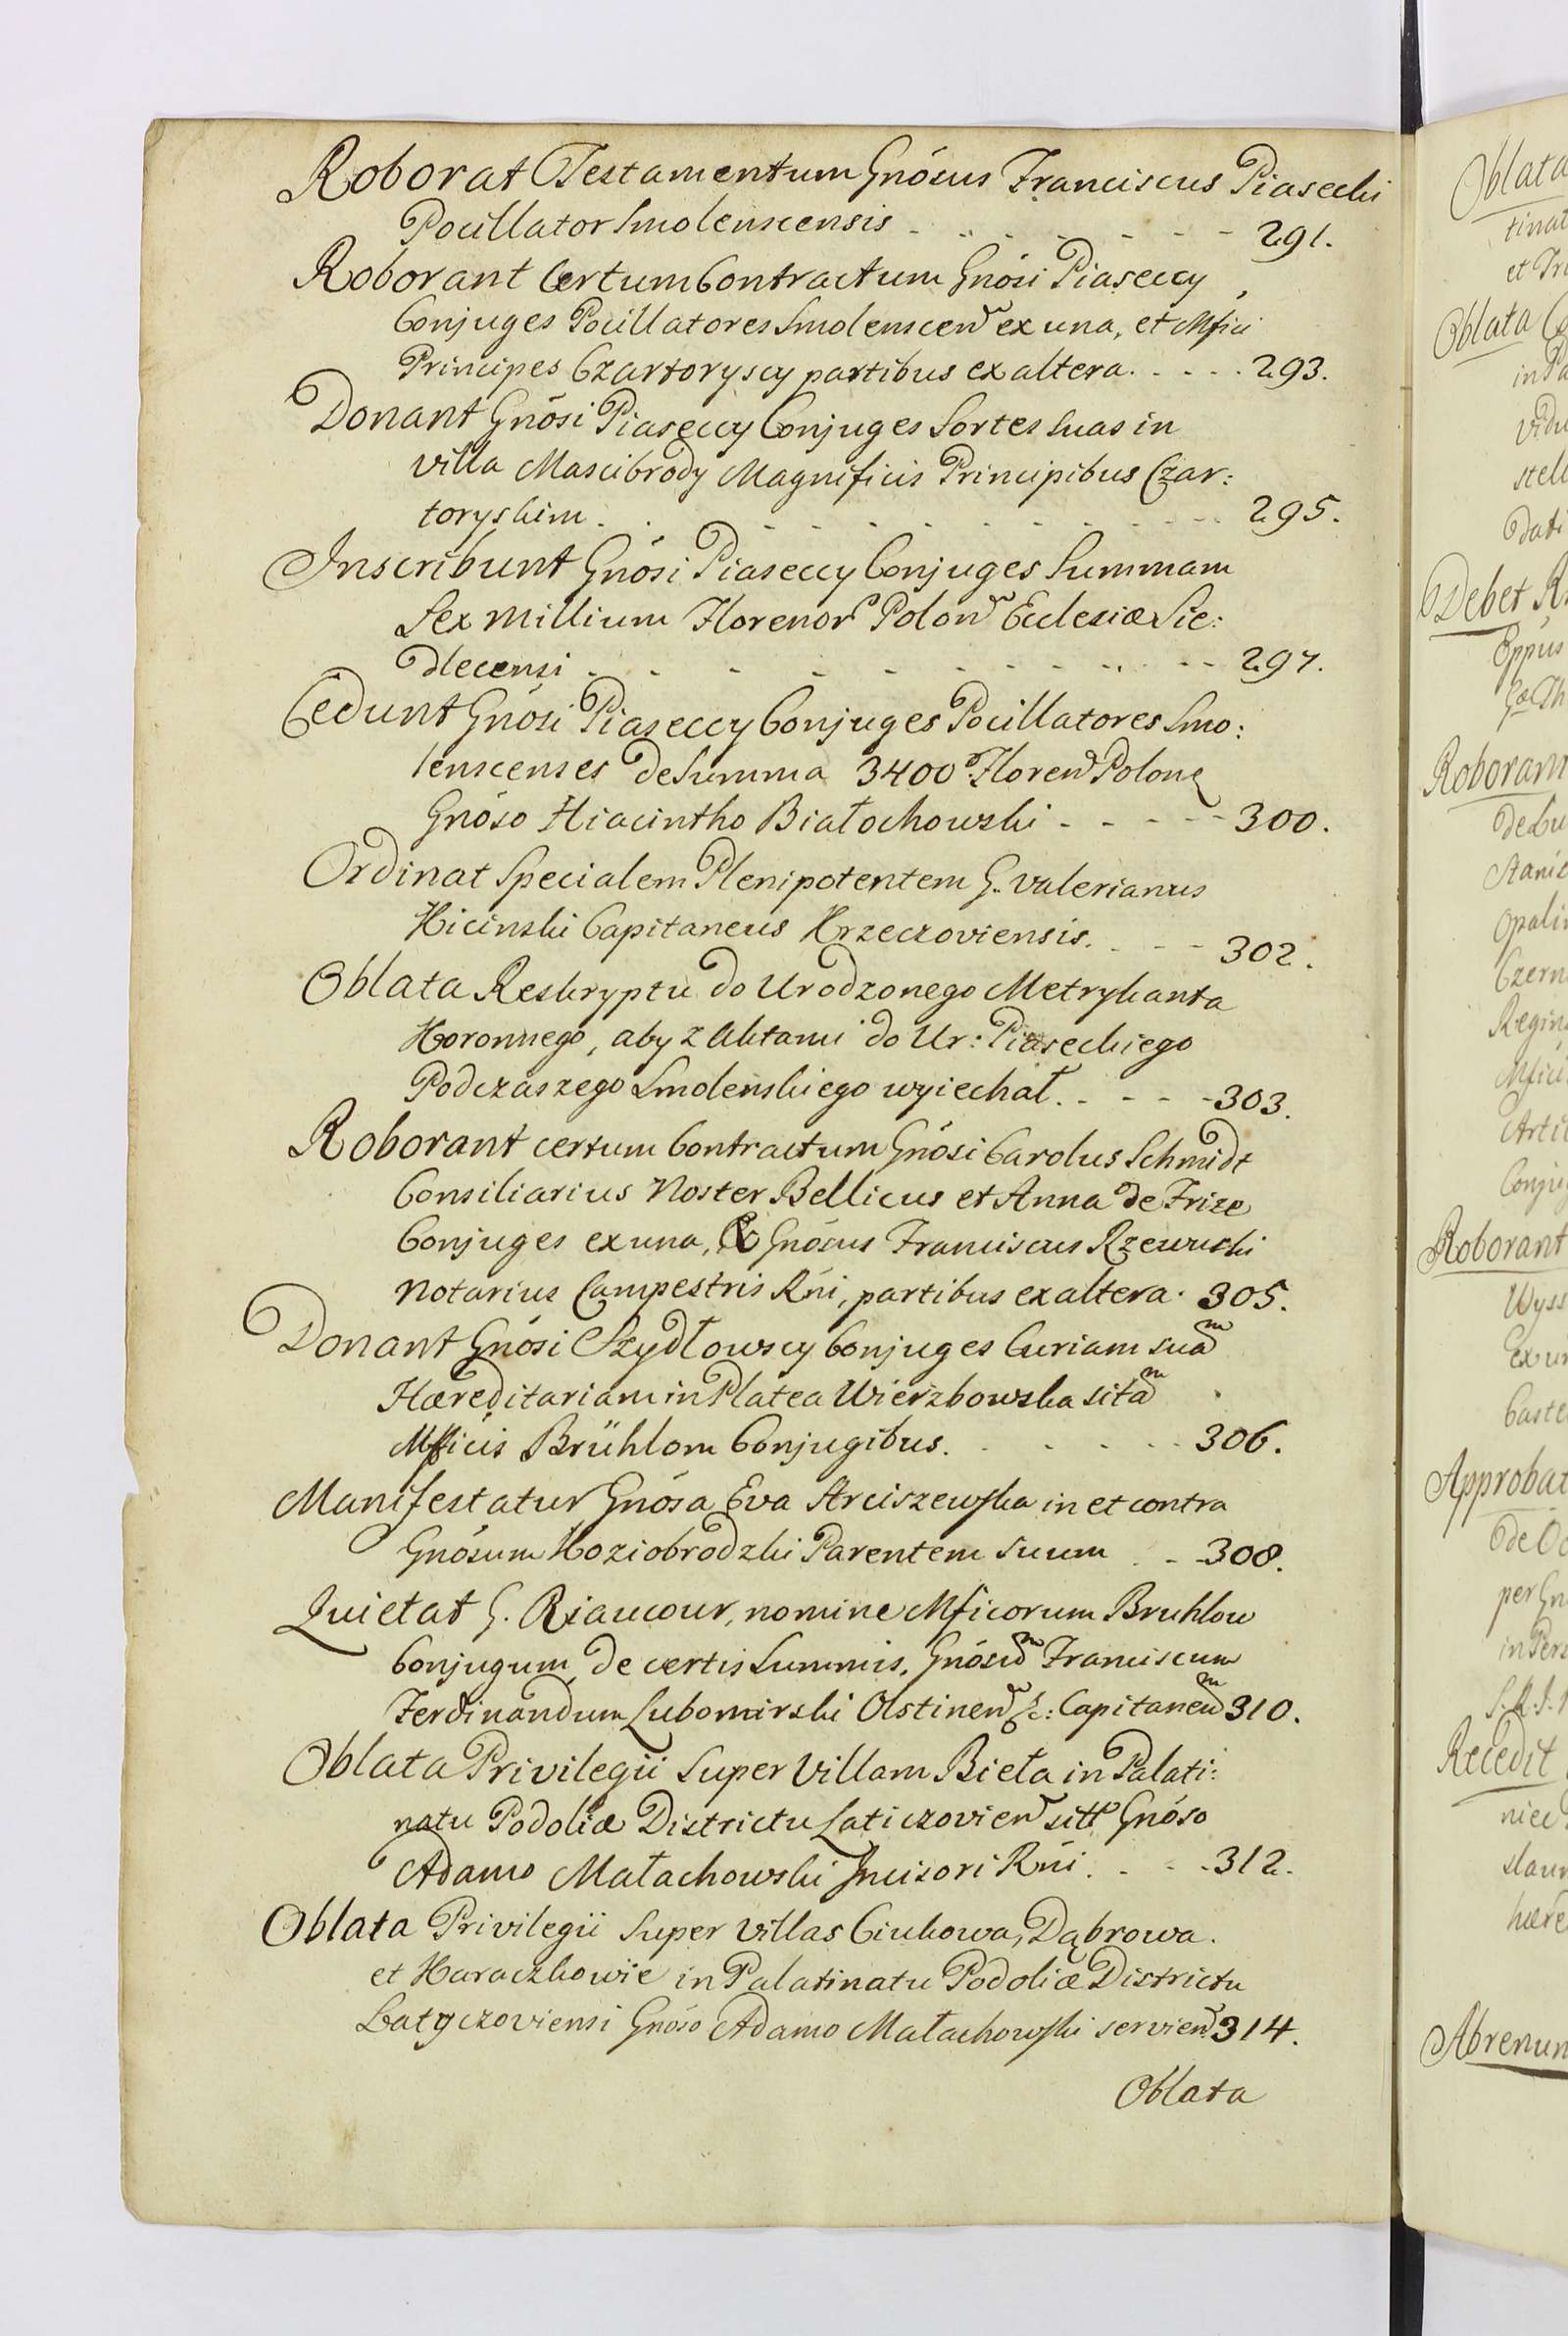 Roborat Testamentum Gnósus Franciscus Piasecki
Pocillator Smolenscensis - - - - - - - 291.
Roborant Certum Contractum Gnósi Piaseccy
Conjuges Pocillatores Smolenscen ex una, et Mfici
Principes Czartoryscy partibus ex altera. - - - - 293.
Donant Gnósi Piaseccy Conjuges Sortes suas in
villa Mascibrody Magnificis Principibus Czar:
toryskim. - - - - - - - - - - - 295.
Inscribunt Gnósi Piaseccy Conjuges Summam
Sex Millium Florenor Polon Ecclesiæ Sie:
dlecensi - - - - - - - - - - - 297.
Cedunt Gnósi Piaseccy Conjuges Pocillatores Smo:
lenscenses de Summa 3400. Floren Polone
Gnóso Hiacintho Białochowski - - - - - 300.
Ordinat Specialem Plenipotentem G. Valerianus
Kicinski Capitaneus Krzeczoviensis. - - - 302.
Oblata Reskryptu do Urodzonego Metrykanta
Koronnego, aby z Aktami do Ur: Piaseckiego
Podczaszego Smolenskiego wyiechał. - - - - 303.
Roborant certum Contractum Gnósi Carolus Schmidt
Consiliarius Noster Bellicus et Anna de Frize
Conjuges ex una, & Gnósus Franciscus Rzewuski
Notarius Campestris Rńi, partibus ex altera. 305.
Donant Gnósi Szydłowscy Conjuges Curiam suam
Hæreditariam in Platea Wierzbowska sitam
Mficis Brühlom Conjugibus. - - - - - 306.
Manifestatur Gnósa Eva Arciszewska in et contra
Gnósum Koziobrodzki Parentem suum . - - 308.
Quietat G. Riaucour, nomine Mficorum Bruhlow
Conjugum, de certis Summis, Gnósum Franciscum
Ferdinandum Lubomirski Olstinen &c: Capitaneum 310.
Oblata Privilegii Super Villam Bieła in Palati:
natu Podoliæ Districtu Laticzovien sitt Gnóso
Adamo Małachowski Incisori Rńi. - - - 312.
Oblata Privilegii Super Villas Ciukowa, Dąbrowa.
et Karaczkowie in Palatinatu Podoliæ Districtu
Latyczoviensi Gnóso Adamo Małachowski servien 314.
Oblata
Oblata
tinat
et Fr
Oblata Co
in Pa
vidu
stell
dati
Debet R
Roborant
de Lu
Stanic
Opalin
Czern
Regin
Mfici
Artic
Conjug
Roborant
Wyss
ex un
Caste
Approbat
de O
per Gn
in Pers
Recedit
niec
slaw
hære
Abrenun